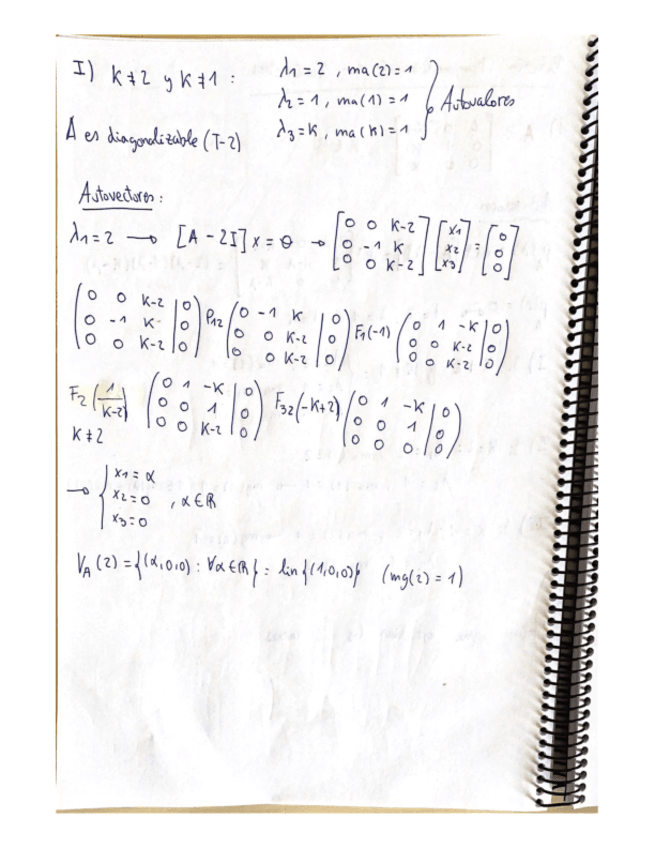 I) K ≠ 2 y K ≠ 1 : λ1 = 2 , ma(2) = 1
λ2 = 1 , ma(1) = 1 } Autovalores
λ3 = K , ma(K) = 1
A es diagonalizable (T-2)
Autovectores :
λ1 = 2 → [A - 2I] x = θ → [0 0 K-2; 0 -1 K; 0 0 K-2] [x1; x2; x3] = [0; 0; 0]
(0 0 K-2 | 0; 0 -1 K | 0; 0 0 K-2 | 0) P12 (0 -1 K | 0; 0 0 K-2 | 0; 0 0 K-2 | 0) F1(-1) (0 1 -K | 0; 0 0 K-2 | 0; 0 0 K-2 | 0)
F2 (1/K-2) (0 1 -K | 0; 0 0 1 | 0; 0 0 K-2 | 0) F32(-K+2) (0 1 -K | 0; 0 0 1 | 0; 0 0 0 | 0)
K ≠ 2
→ { x1 = α
x2 = 0 , α ∈ ℝ
x3 = 0
VA (2) = {(α,0,0) : ∀α ∈ ℝ} = lin {(1,0,0)} (mg(2) = 1)